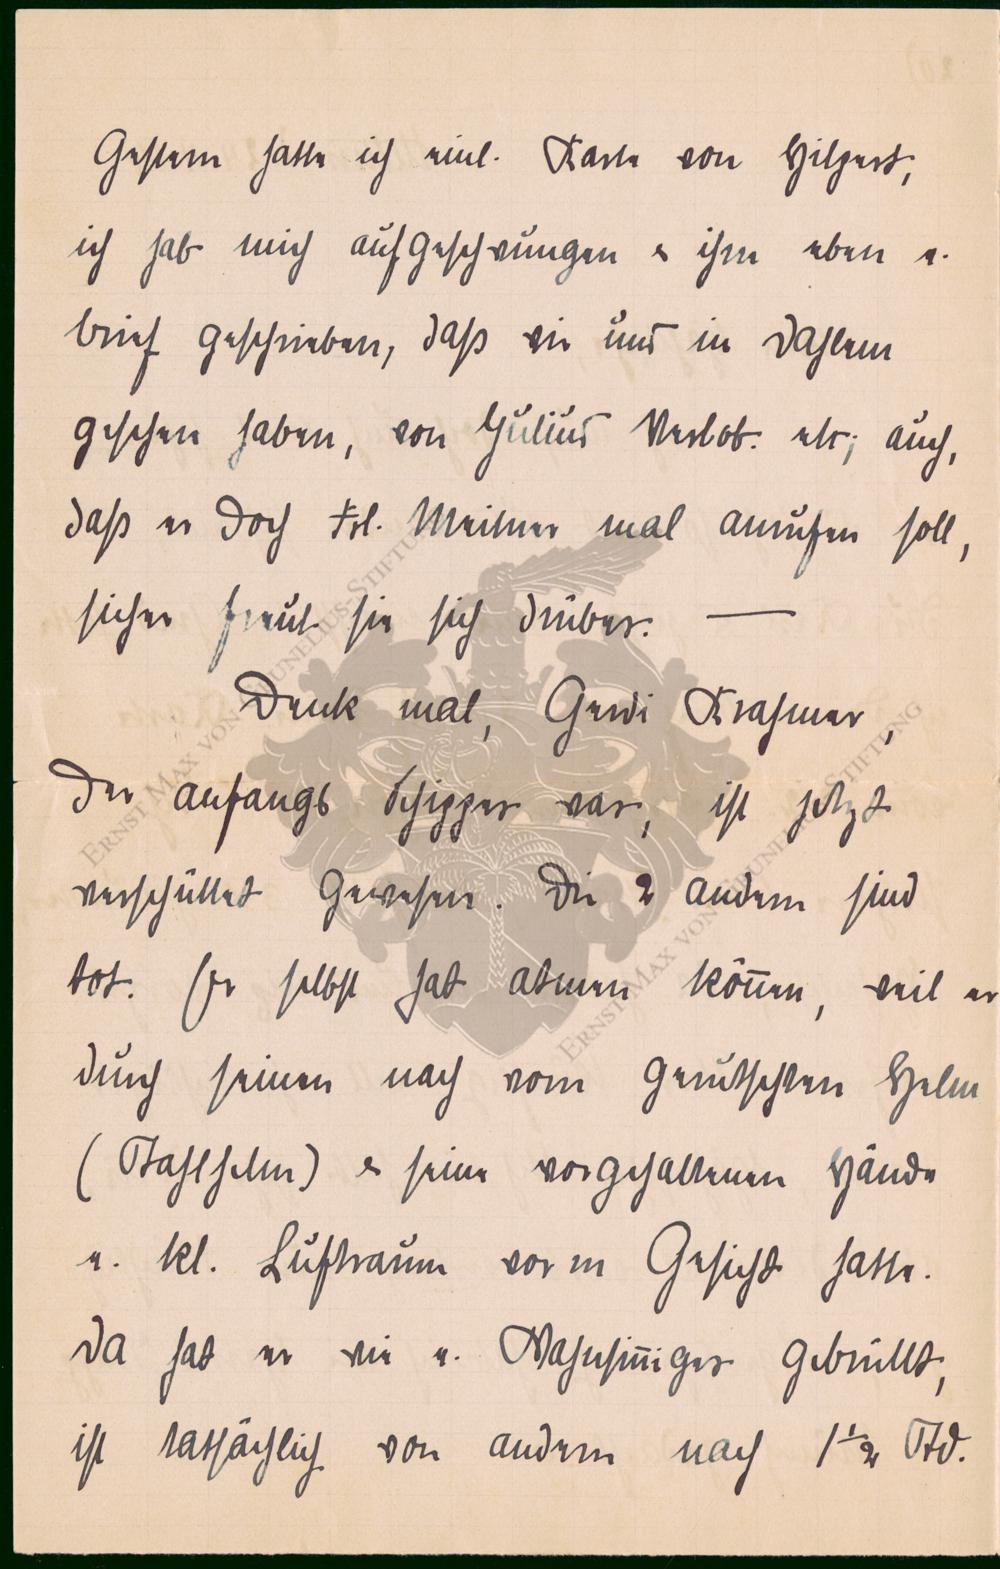 Gestern hatte ich eine Karte von Hilpert,
ich hab mich aufgeschwungen & ihm eben e.
brief geschrieben, daß wir uns in Dahlem
gesehen haben, von Julius Verlob. etc; auch,
daß er doch Frl. Meitner mal anrufen soll,
sicher freut sie sich drüber. —
Denk mal, Gerdi Krahmer,
der anfangs Schipper war, ist jetzt
verschüttet gewesen. Die 2 andern sind
tot. Er selbst hat atmen kön̄en, weil er
durch seinen nach vorn gerutschten Helm
(Stahlhelm) & seine vorgehaltenen Hände
e. kl. Luftraum vorm Gesicht hatte.
Da hat er wie e. Wahnsin̄iger gebrüllt,
ist tatsächlich von andern nach 1½ Std.
ERNST MAX VON GRUNELIUS-STIFTUNG
ERNST MAX VON GRUNELIUS-STIFTUNG